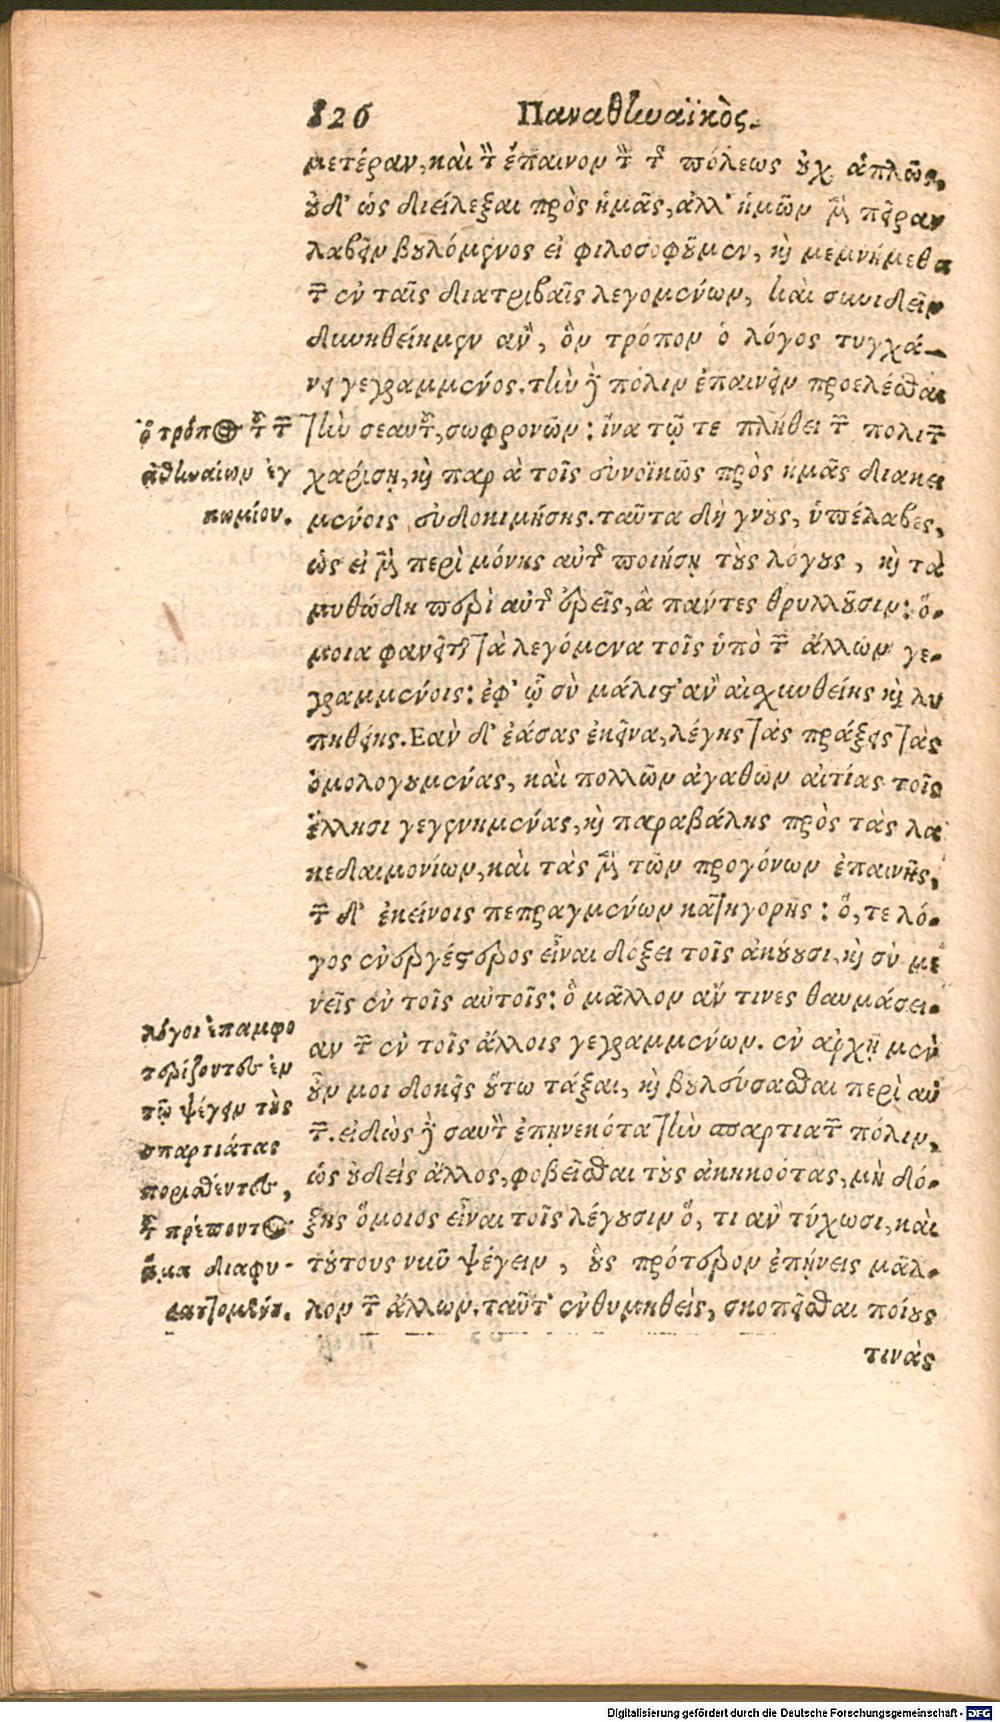 826 Παναθηναϊκὸς.
μετέραν, καὶ τὸν ἔπαινον τὸν τῆς πόλεως οὐχ ἁπλῶς,
οὐδ' ὡς διείλεξαι πρὸς ἡμᾶς, ἀλλ' ἡμῶν μὲν πεῖραν
λαβεῖν βουλόμενος εἰ φιλοσοφοῦμεν, καὶ μεμνήμεθα
τῶν ἐν ταῖς διατριβαῖς λεγομένων, καὶ συνιδεῖν
δυνηθείημεν ἂν, ὃν τρόπον ὁ λόγος τυγχά-
νει γεγραμμένος. τὴν γὰρ πόλιν ἐπαινεῖν προελέσθαι
ὁ τρόπος τοῦ τῶν
τὴν σεαυτοῦ, σωφρονῶν: ἵνα τῷ τε πλήθει τῶν πολιτῶν
ἀθηναίων ἐγ
χαρίσῃ, καὶ παρὰ τοῖς εὐνοϊκῶς πρὸς ἡμᾶς διακει
κωμίου.
μένοις εὐδοκιμήσῃς. ταῦτα δὴ γνοὺς, ὑπέλαβες,
ὡς εἰ μὲν περὶ μόνης αὐτῆς ποιήσῃ τοὺς λόγους, καὶ τὰ
μυθώδη περὶ αὐτῆς ἐρεῖς, ἃ πάντες θρυλλοῦσιν: ὅ-
μοια φανεῖται τὰ λεγόμενα τοῖς ὑπὸ τῶν ἄλλων γε-
γραμμένοις: ἐφ' ᾧ σὺ μάλιστ' ἂν αἰσχυνθείης καὶ λυ
πηθείης. Εὰν δ' ἐάσας ἐκεῖνα, λέγῃς τὰς πράξεις τὰς
ὁμολογουμένας, καὶ πολλῶν ἀγαθῶν αἰτίας τοῖς
ἕλλησι γεγενημένας, καὶ παραβάλῃς πρὸς τὰς λα
κεδαιμονίων, καὶ τὰς μὲν τῶν προγόνων ἐπαινῇς,
τῶν δ' ἐκείνοις πεπραγμένων κατηγορῇς: ὅ, τε λό-
γος ἐνεργέστερος εἶναι δόξει τοῖς ἀκούουσι, καὶ σὺ με
νεῖς ἐν τοῖς αὐτοῖς: ὃ μᾶλλον ἄν τινες θαυμάσει-
λόγοι ἐπαμφο
αν τῶν ἐν τοῖς ἄλλοις γεγραμμένων. ἐν ἀρχῇ μὲν
τερίζοντες ἐν
οὖν μοι δοκεῖς οὕτω τάξαι, καὶ βουλεύσασθαι περὶ αὐ
τῷ ψέγειν τοὺς
τῶν. εἰδὼς γὰρ σαυτὸν ἐπῃνεκότα τὴν σπαρτιατῶν πόλιν,
σπαρτιάτας
ὡς οὐδεὶς ἄλλος, φοβεῖσθαι τοὺς ἀκηκοότας, μὴ δό-
πορισθέντες,
ξῃς ὅμοιος εἶναι τοῖς λέγουσιν ὅ, τι ἂν τύχωσι, καὶ
τοῦ πρέποντος
τούτους νῦν ψέγειν, οὓς πρότερον ἐπῄνεις μᾶλ-
ἅμα διαφυ-
λον τῶν ἄλλων. ταῦτ' ἐνθυμηθεὶς, σκοπεῖσθαι ποίους
λαττομένου.
τινὰς
Digitalisierung gefördert durch die Deutsche Forschungsgemeinschaft - DFG